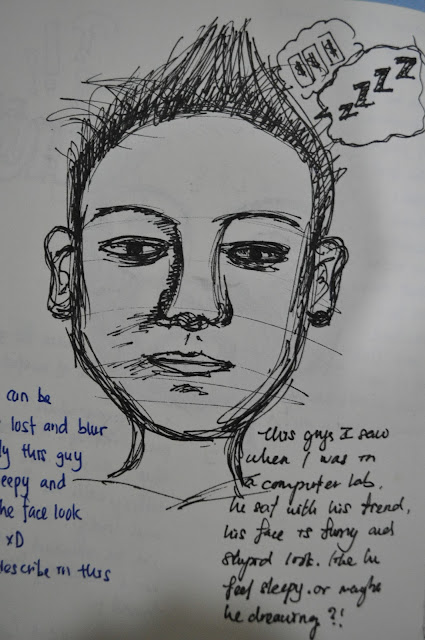 $ $ $
z z z z
can be
lost and blur
ly this guy
eepy and
he face look
xD
describe in this
this guys I saw
when I was in
a computer lab.
he sat with his friend,
his face is funny and
stupid look. like he
feel sleepy. or maybe
he dreaming ?!